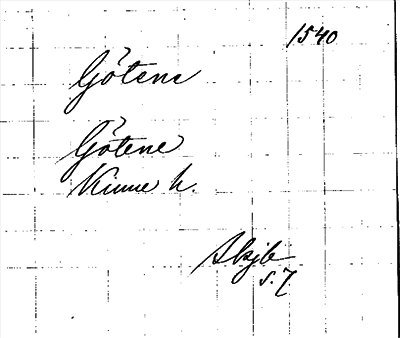 1540
Götene
Götene
Kinne h.
Skjb
s. 7